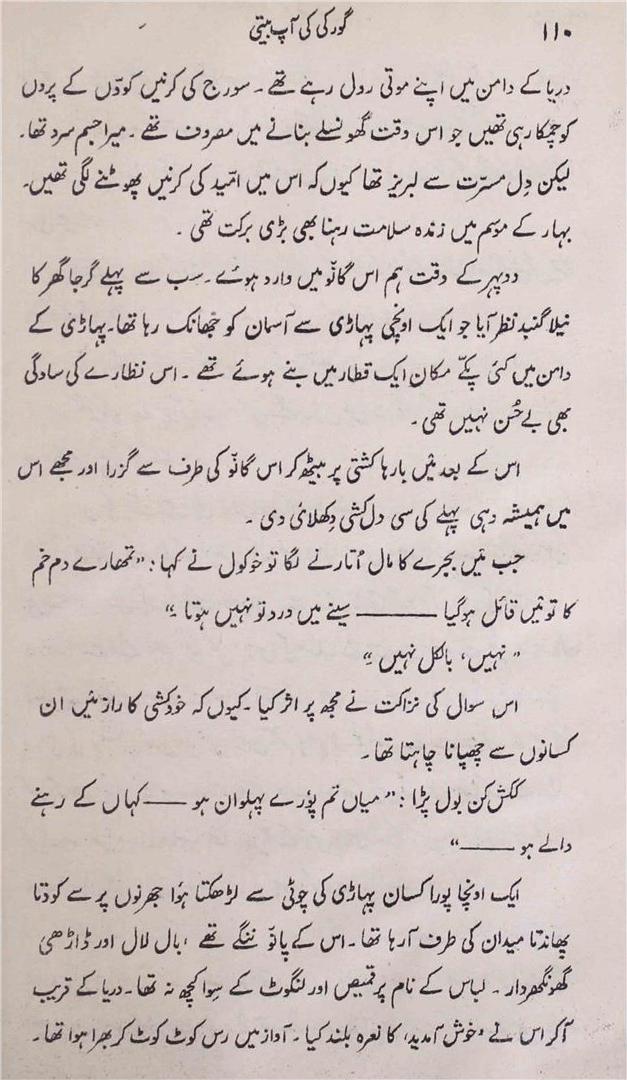 ۱۱۰ گورکی کی آپ بیتی
دریا کے دامن میں اپنے موتی رول رہے تھے ۔ سورج کی کرنیں کوّوں کے پروں
کو چمکا رہی تھیں جو اس وقت گھونسلے بنانے میں مصروف تھے ۔ میرا جسم سرد تھا۔
لیکن دِل مسرّت سے لبریز تھا کیوں کہ اس میں امّید کی کرنیں پھوٹنے لگی تھیں۔
بہار کے موسم میں زندہ سلامت رہنا بھی بڑی برکت تھی ۔
دوپہر کے وقت ہم اس گانّو میں وارد ہوئے ۔ سب سے پہلے گرجا گھر کا
نیلا گنبد نظر آیا جو ایک اونچی پہاڑی سے آسمان کو جھانک رہا تھا۔ پہاڑی کے
دامن میں کئی پکّے مکان ایک قطار میں بنے ہوئے تھے ۔ اس نظارے کی سادگی
بھی بے حُسن نہیں تھی ۔
اس کے بعد مَیں بارہا کشتی پر بیٹھ کر اس گانّو کی طرف سے گزرا اور مجھے اس
میں ہمیشہ وہی پہلے کی سی دل کشی دِکھلائی دی ۔
جب مَیں بجرے کا مال اُتارنے لگا تو خوکول نے کہا : ”تمھارے دم خم
کا تو مَیں قائل ہو گیا ——— سینے میں درد تو نہیں ہوتا ۔“
” نہیں، بالکل نہیں ۔“
اس سوال کی نزاکت نے مجھ پر اثر کیا ۔ کیوں کہ خودکشی کا راز مَیں ان
کسانوں سے چھپانا چاہتا تھا ۔
ککش کن بول پڑا : ” میاں تم پورے پہلوان ہو —— کہاں کے رہنے
والے ہو ——“
ایک اونچا پورا کسان پہاڑی کی چوٹی سے لڑھکتا ہُوا جھرنوں پر سے کودتا
پھاندتا میدان کی طرف آ رہا تھا ۔ اس کے پانّو ننگے تھے ، بال لال اور ڈاڑھی
گھونگھردار ۔ لباس کے نام پر قمیص اور لنگوٹ کے سِوا کچھ نہ تھا ۔ دریا کے قریب
آ کر اس نے ’خوش آمدید‘ کا نعرہ بلند کیا ۔ آواز میں رس کوٹ کوٹ کر بھرا ہوا تھا ۔